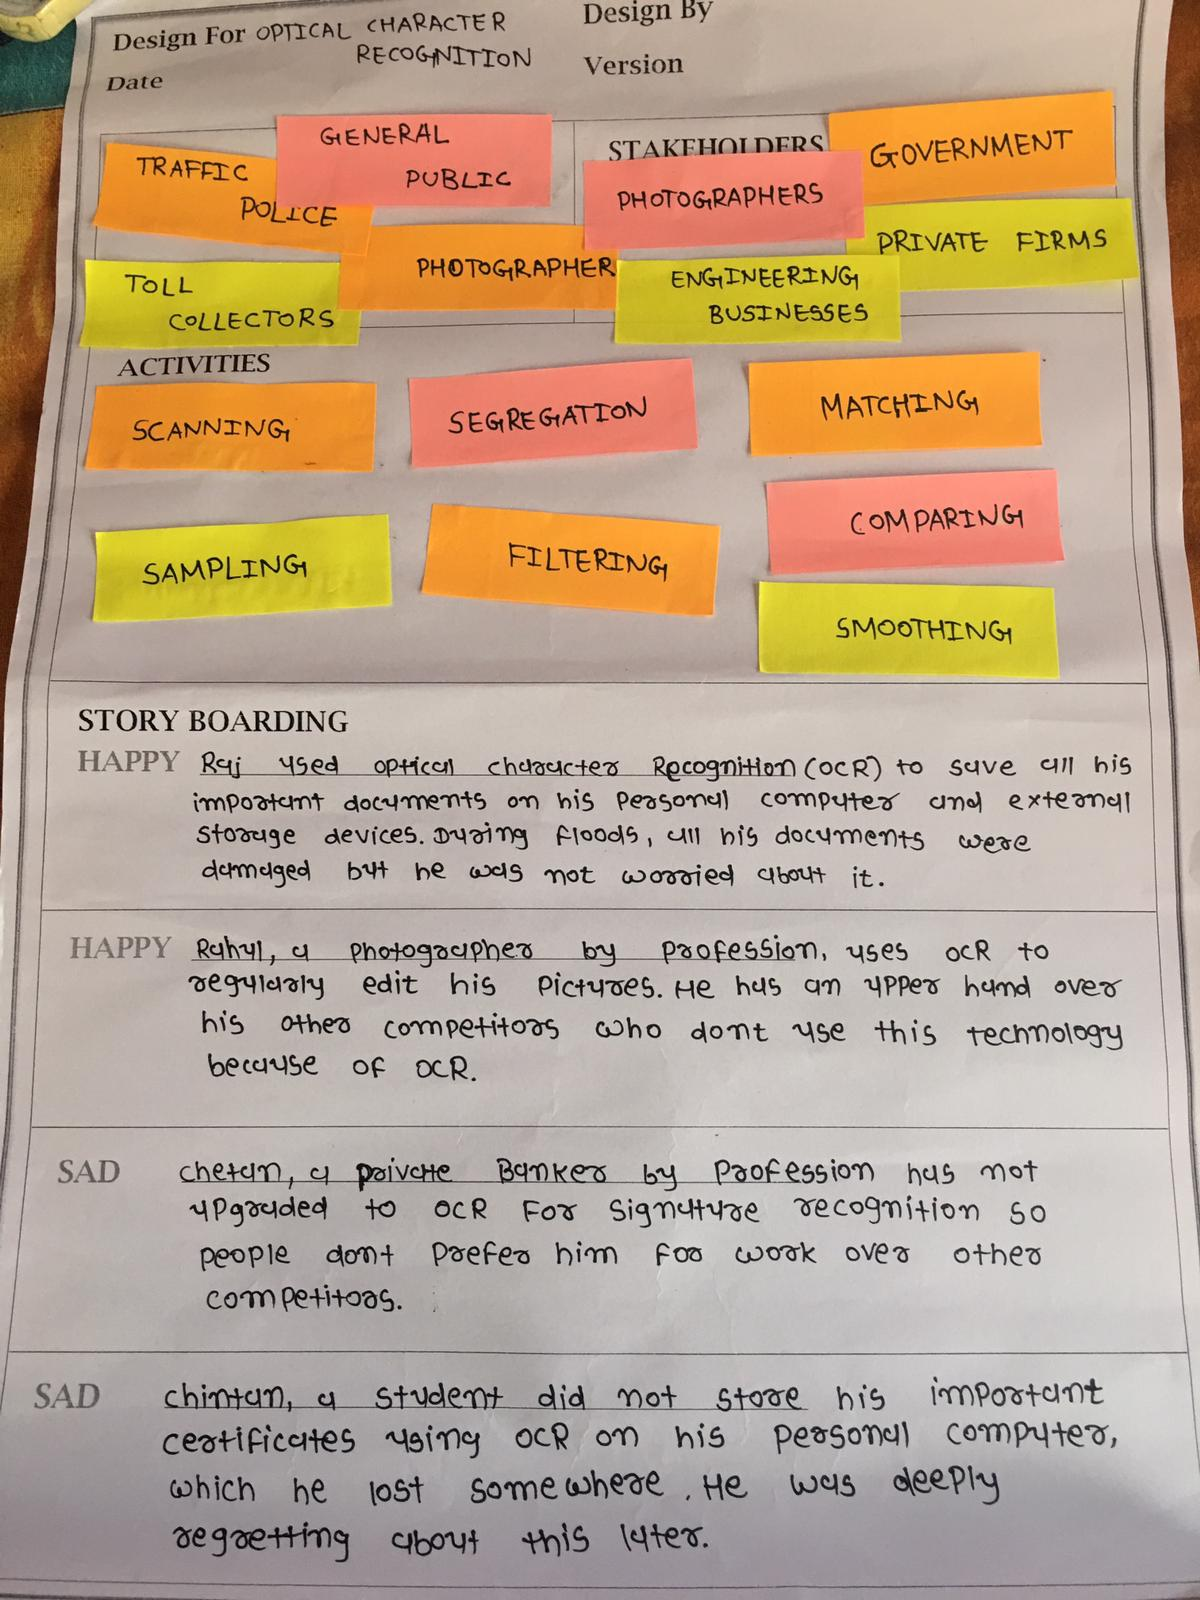 Design For OPTICAL CHARACTER
RECOGNITION
Date
Design By
Version
GENERAL
PUBLIC
TRAFFIC
POLICE
PHOTOGRAPHER
TOLL
COLLECTORS
STAKEHOLDERS
GOVERNMENT
PHOTOGRAPHERS
PRIVATE FIRMS
ENGINEERING
BUSINESSES
ACTIVITIES
SCANNING
SEGREGATION
MATCHING
COMPARING
SAMPLING
FILTERING
SMOOTHING
STORY BOARDING
HAPPY Raj used optical character Recognition (OCR) to save all his
important documents on his personal computer and external
storage devices. During floods, all his documents were
damaged but he was not worried about it.
HAPPY Rahul, a photographer by profession, uses OCR to
regularly edit his pictures. He has an upper hand over
his other competitors who dont use this technology
because of OCR.
SAD chetan, a private Banker by profession has not
upgraded to OCR For signature recognition so
people dont prefer him for work over other
competitors.
SAD chintan, a student did not store his important
certificates using OCR on his personal computer,
which he lost somewhere. He was deeply
regretting about this later.